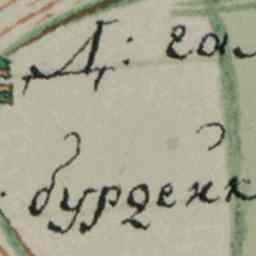 Д: га
бурденк